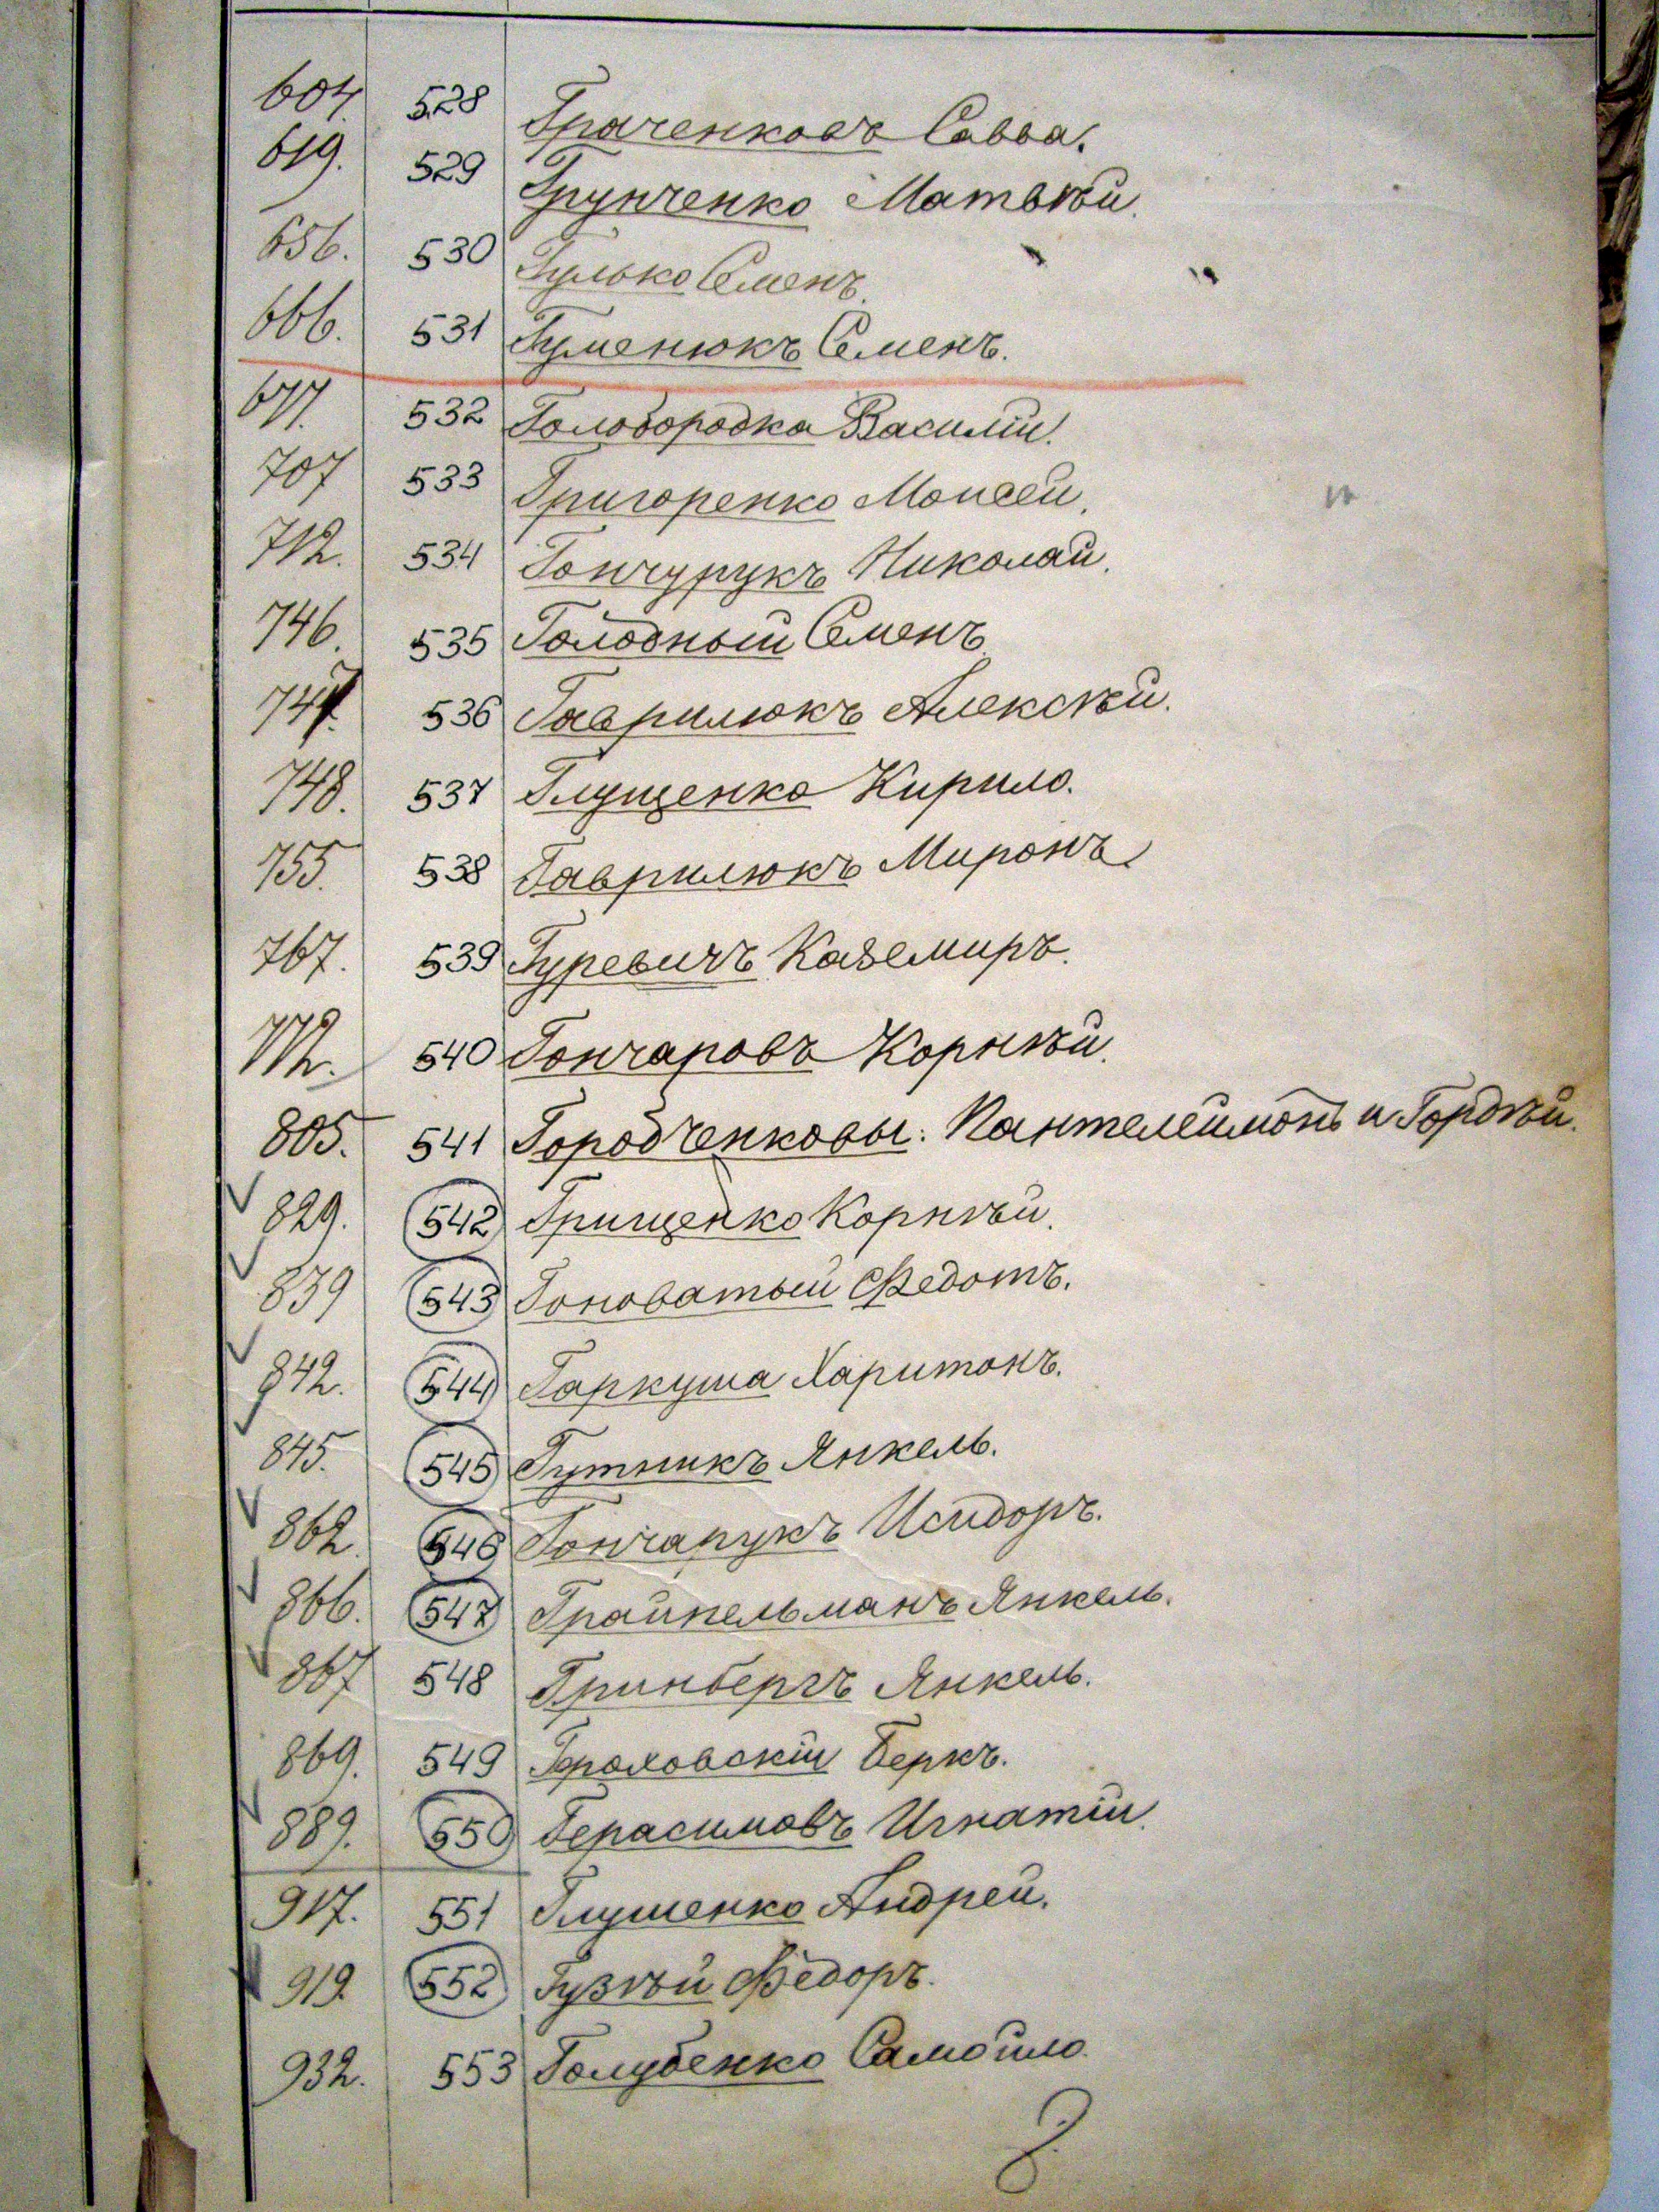 604. 528 Граченковъ Савва.
619. 529 Грунченко Матвѣй.
656. 530 Гулько Семенъ.
666. 531 Гуменюкъ Семенъ.
677. 532 Голобородка Василій.
707 533 Григоренко Моисей.
712. 534 Гончурукъ Николай.
746. 535 Голодный Семенъ.
747. 536 Гаврилюкъ Алексѣй.
748. 537 Глущенко Кирило.
755. 538 Гаврилюкъ Миронъ.
767. 539 Гуревичъ Каземиръ.
772. 540 Гончаровъ Корнѣй.
805. 541 Городченковы: Пантелеймонъ и Гордѣй.
829. 542 Грищенко Корнѣй.
839 543 Гоноватый Федотъ.
842. 544 Гаркуша Харитонъ.
845. 545 Гутникъ Янкель.
862. 546 Гончарукъ Исидоръ.
866. 547 Грайпельманъ Янкель.
867 548 Гринбергъ Янкель.
869. 549 Гороховскій Беркъ.
889. 550 Герасимовъ Игнатій.
917. 551 Глушенко Андрей.
919. 552 Гузѣй Федоръ.
932. 553 Голубенко Самойло.